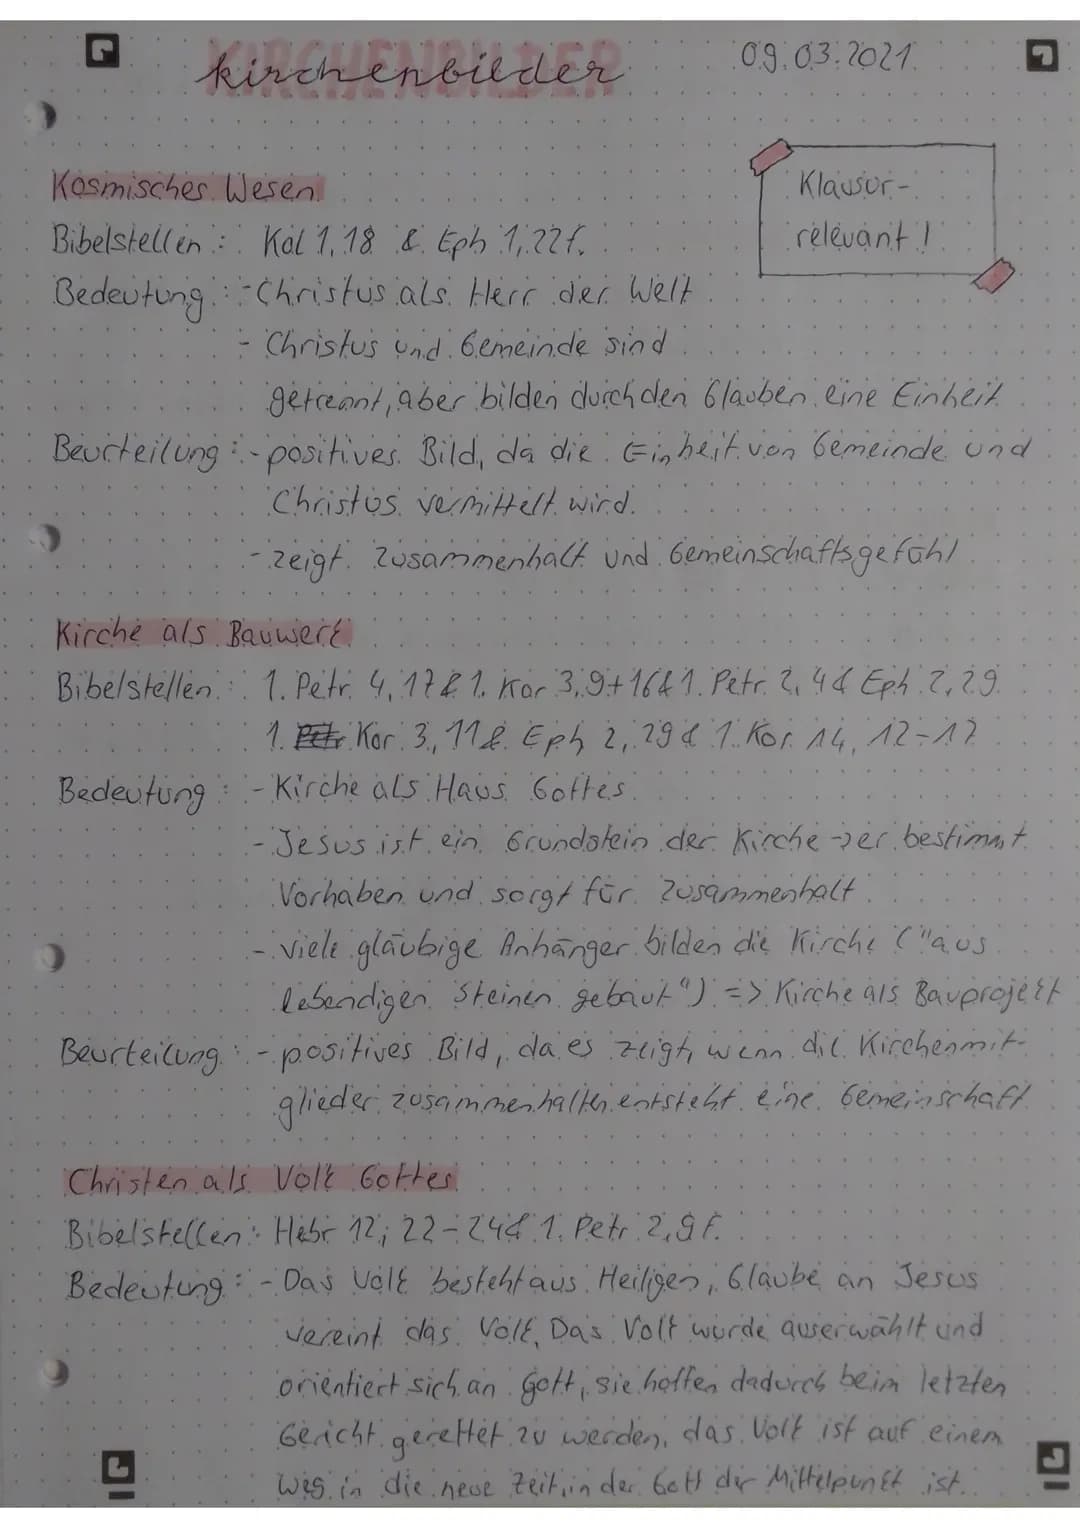 KIRCHENBILDER
kirchenbilder
09.03.2021
Klausur-
relevant!
Kosmisches Wesen
Bibelstellen: Kol 1,18 & Eph 1,22f.
Bedeutung: - Christus als Herr der Welt
- Christus und Gemeinde sind
getrennt, aber bilden durch den Glauben eine Einheit
Beurteilung: - positives Bild, da die Einheit von Gemeinde und
Christus vermittelt wird.
- zeigt Zusammenhalt und Gemeinschaftsgefühl
Kirche als Bauwerk
Bibelstellen: 1. Petr. 4,17 & 1. Kor 3,9+16 & 1. Petr. 2,4 & Eph 2,29
1. Kor. 3,11 & Eph 2,29 & 1. Kor. 14, 12-17
Bedeutung: - Kirche als Haus Gottes
- Jesus ist ein Grundstein der Kirche → er bestimmt
Vorhaben und sorgt für Zusammenhalt
- viele gläubige Anhänger bilden die Kirche ("aus
lebendigen Steinen gebaut") => Kirche als Bauprojekt
Beurteilung: - positives Bild, da es zeigt, wenn die Kirchenmit-
glieder zusammenhalten entsteht eine Gemeinschaft
Christen als Volk Gottes
Bibelstellen: Hebr 12; 22-24 & 1. Petr 2,9f.
Bedeutung: - Das Volk besteht aus Heiligen, Glaube an Jesus
vereint das Volk, Das Volk wurde auserwählt und
orientiert sich an Gott, sie hoffen dadurch beim letzten
Gericht gerettet zu werden, das Volk ist auf einem
Weg in die neue Zeit, in der Gott der Mittelpunkt ist.